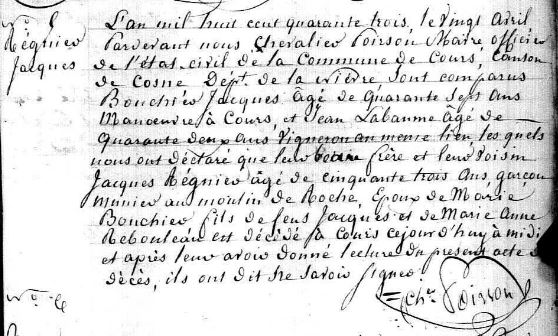 N° 5
Régnier
Jacques
L'an mil huit cent quarante trois, le vingt avril
Pardevant nous Chevalier Poisson Maire officier
de l'état civil de la Commune de Cours, Canton
de Cosne Dépt. de la Nièvre sont comparus
Bouchier Jacques âgé de quarante sept ans
Manœuvre à Cours, et Jean Labaume âgé de
quarante deux ans Vigneron au même lieu les quels
nous ont déclaré que leur beau frère et leur voisin
Jacques Régnier âgé de cinquante trois ans, garçon
munier au moulin de Roche, Epoux de Marie
Bouchier fils de feus Jacques et de Marie Anne
Rebouleau est décédé à Cours cejourd'huy à midi
et après leur avoir donné lecture du present acte de
décès, ils ont dit ne savoir signer
Chr Poisson
N° 6